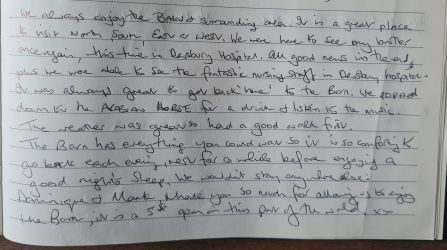 We always enjoy the Barn & surrounding area. It is a great place
to visit North South East or West. We were here to see my brother
once again, this time in Dewsbury Hospital. All good news in the end,
plus we were able to see the fantastic nursing staff in Dewsbury hospital.
It was always great to get back 'home' to the Barn. We popped
down to the ARABIAN HORSE for a drink & listen to the music.
The weather was great so had a good walk first.
The Barn has everything you could want so it is so comforting to
go back each evening, rest for a while before enjoying a
good night's sleep, We wouldn't stay anywhere else.
Dominique & Mark, thank you so much for allowing us to enjoy
the Barn, it is a 5* gem in this part of the world. xx